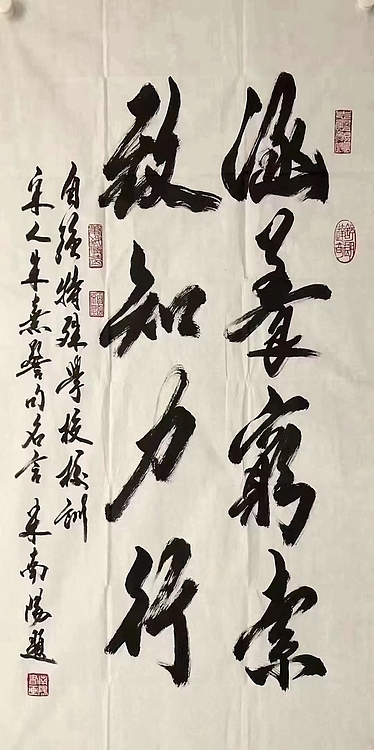 涵養窮索
致知力行
自强特殊學校校訓
宋人朱熹警句名言 朱南陽題